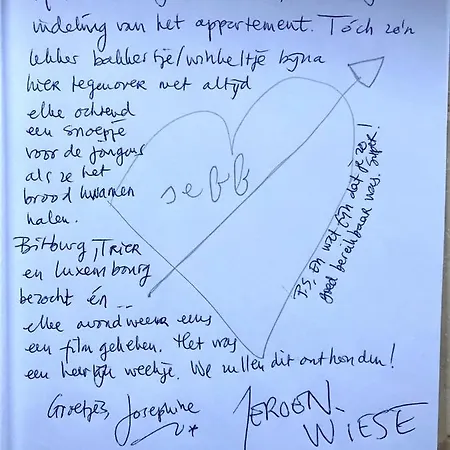 indeling van het appartement. Tóch zo'n
lekker bakkertje/winkeltje bijna
hier tegenover met altijd
elke ochtend
een snoepje
voor de jongens
als ze het
brood kwamen
halen.
sebb
Bitburg, Trier
en Luxembourg
bezocht én...
elke avond weer eens
een film gekeken. Het was
een heerlijk weekje. We zullen dit onthouden!
P.S. En wat fijn dat je zo
goed bereikbaar was. Super!
Groetjes, Josephine
JEROEN.
WIESE